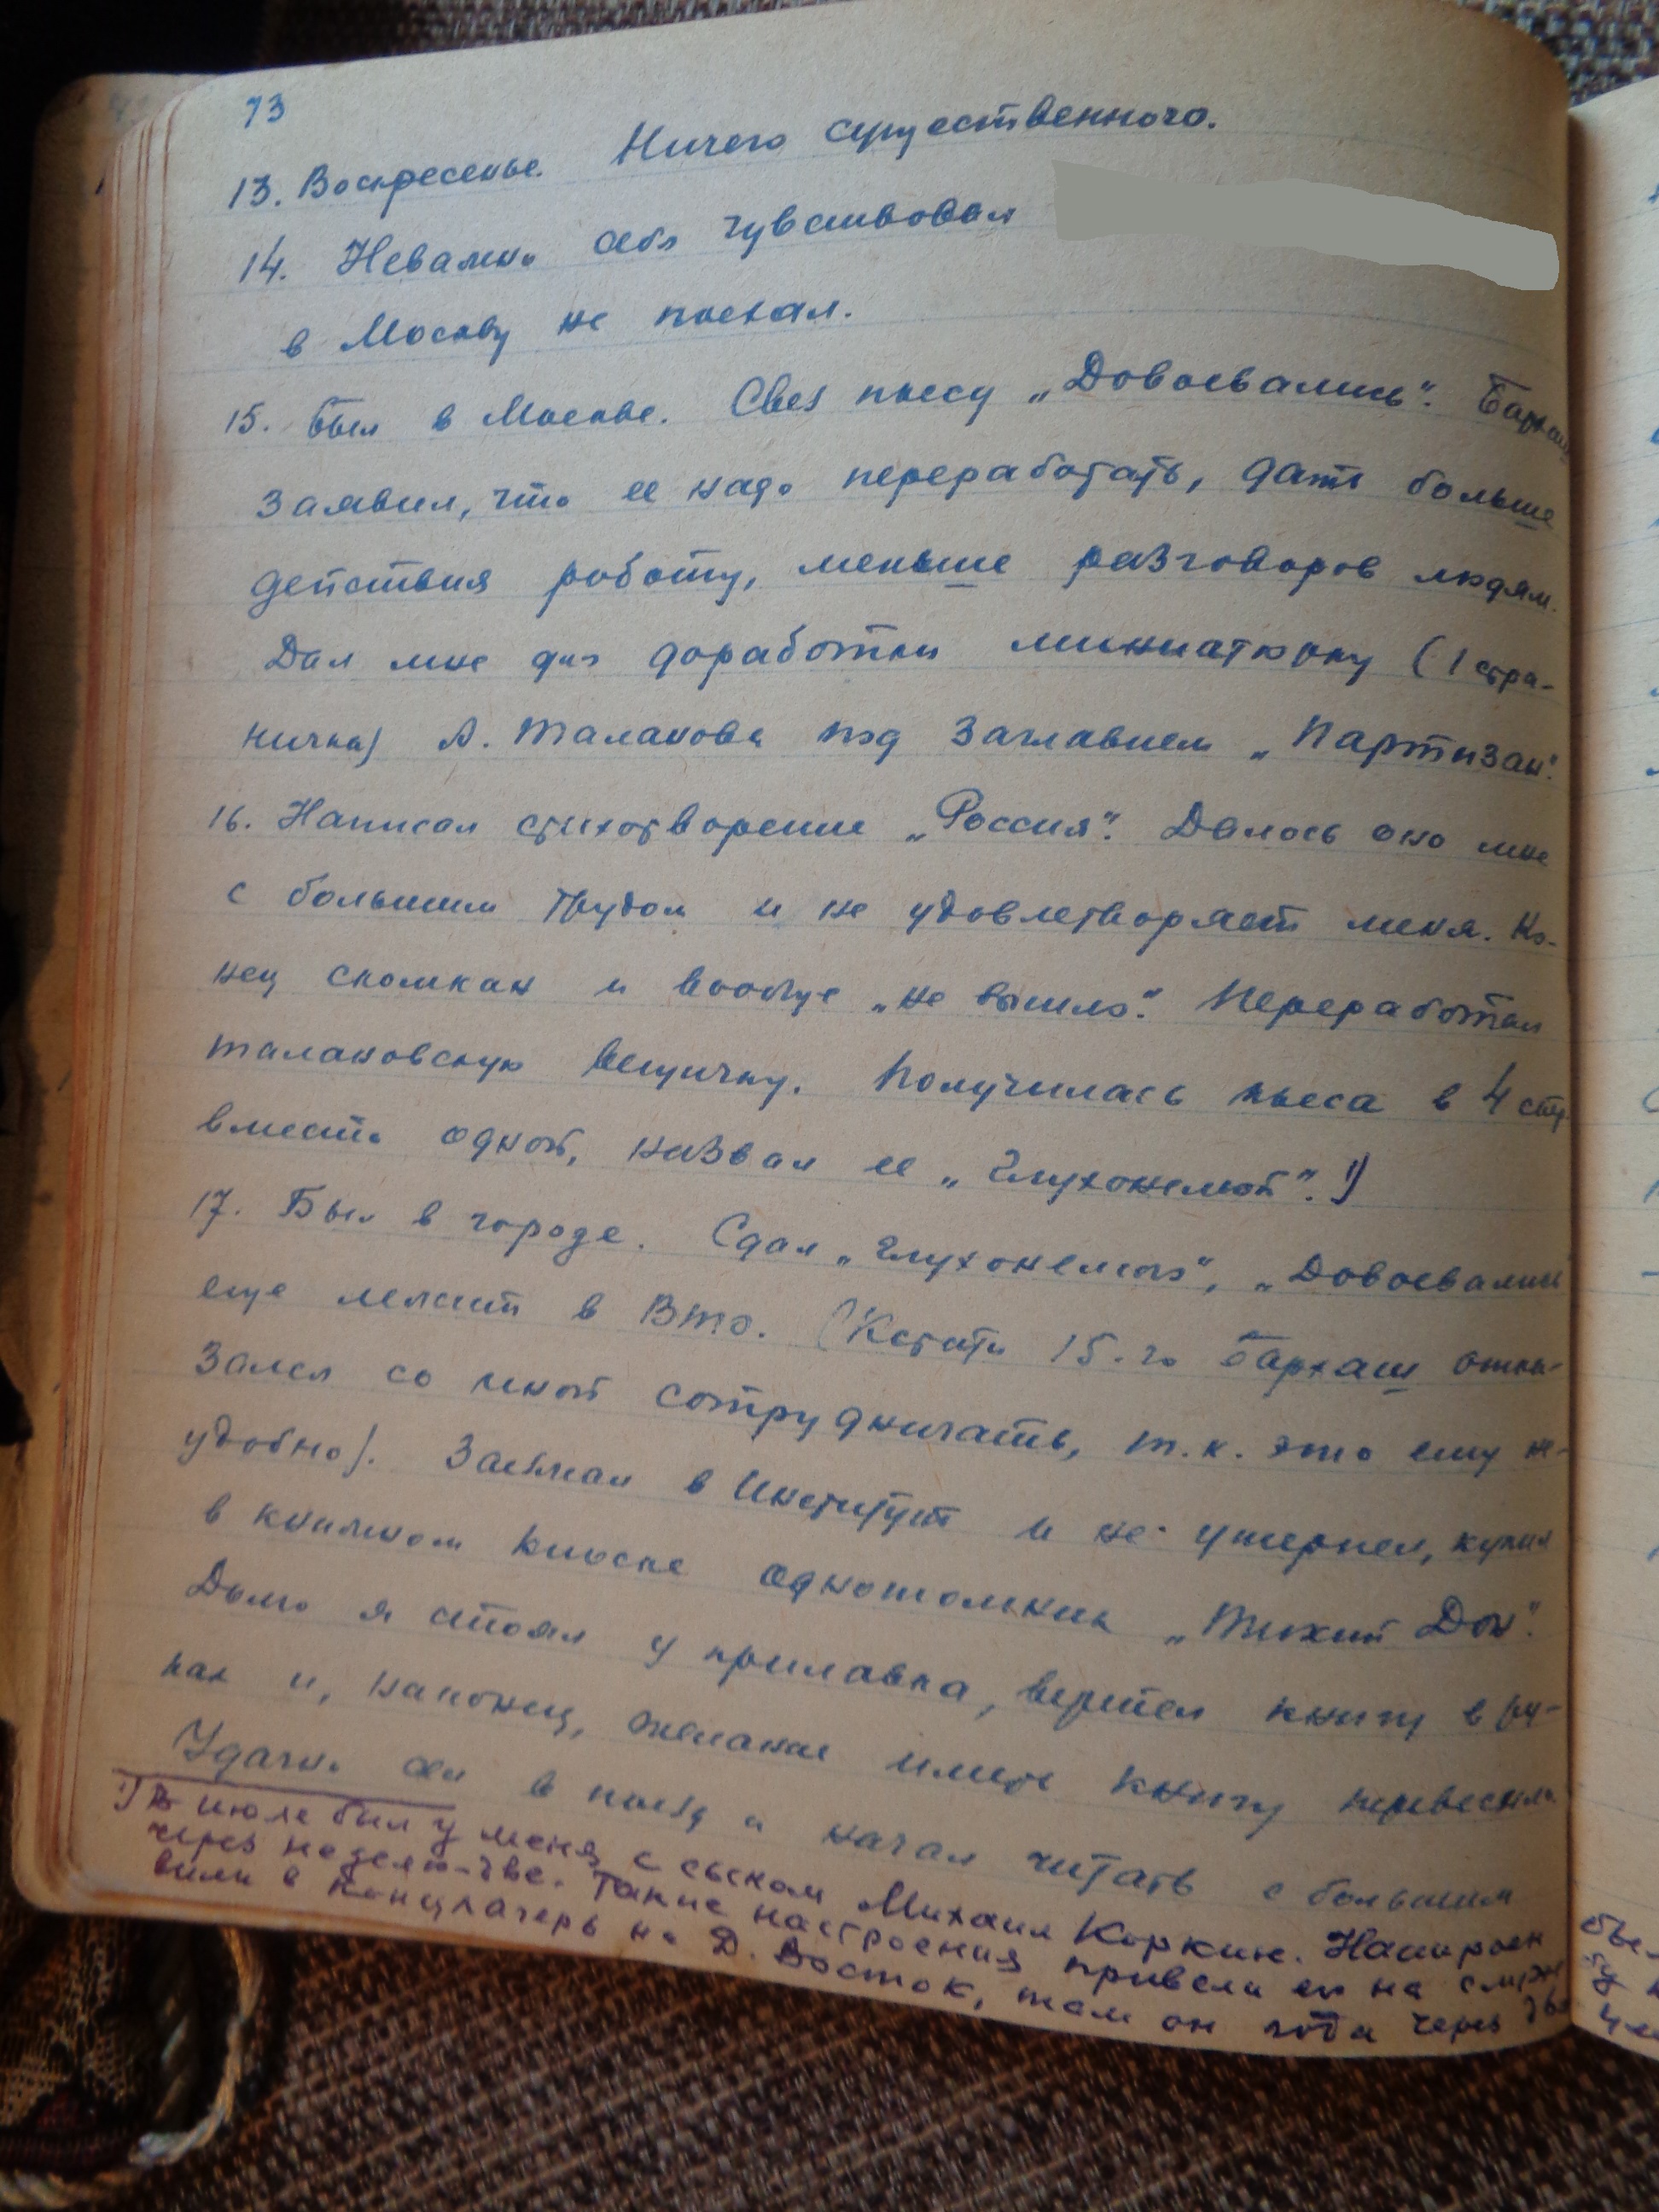 73
13. Воскресенье. Ничего существенного.
14. Неважно себя чувствовал
в Москву не поехал.
15. Был в Москве. Свез пьесу „Довоевались“. Бархаш
заявил, что ее надо переработать, дать больше
действия роботу, меньше разговоров людям.
Дал мне для доработки миниатюрку (1 стра-
ничка) А. Талакова под заглавием „Партизан“.
16. Написал стихотворение „Россия“. Далось оно мне
с большим трудом и не удовлетворяет меня. Ко-
нец скомкан и вообще „не вышло“. Переработал
талаковскую вещичку. Получилась пьеса в 4 стр
вместо одной, назвал ее „Глухонемой“. 1)
17. Был в городе. Сдал „Глухонемого“, „Довоевались
еще лежит в ВТО. (Кстати 15-го Бархаш отка-
зался со мной сотрудничать, т.к. это ему не-
удобно). Заезжал в Институт и не утерпел, купил
в книжном киоске однотомник „Тихий Дон“.
Долго я стоял у прилавка, вертел книгу в ру-
ках и, наконец, желание иметь книгу перевесило.
Удачно сел в поезд и начал читать с большим
1) В июле был у меня с сыном Михаил Коркин. Настроен
через неделю-две. Такие настроения привели его на
вили в концлагерь на Д. Восток, там он года через